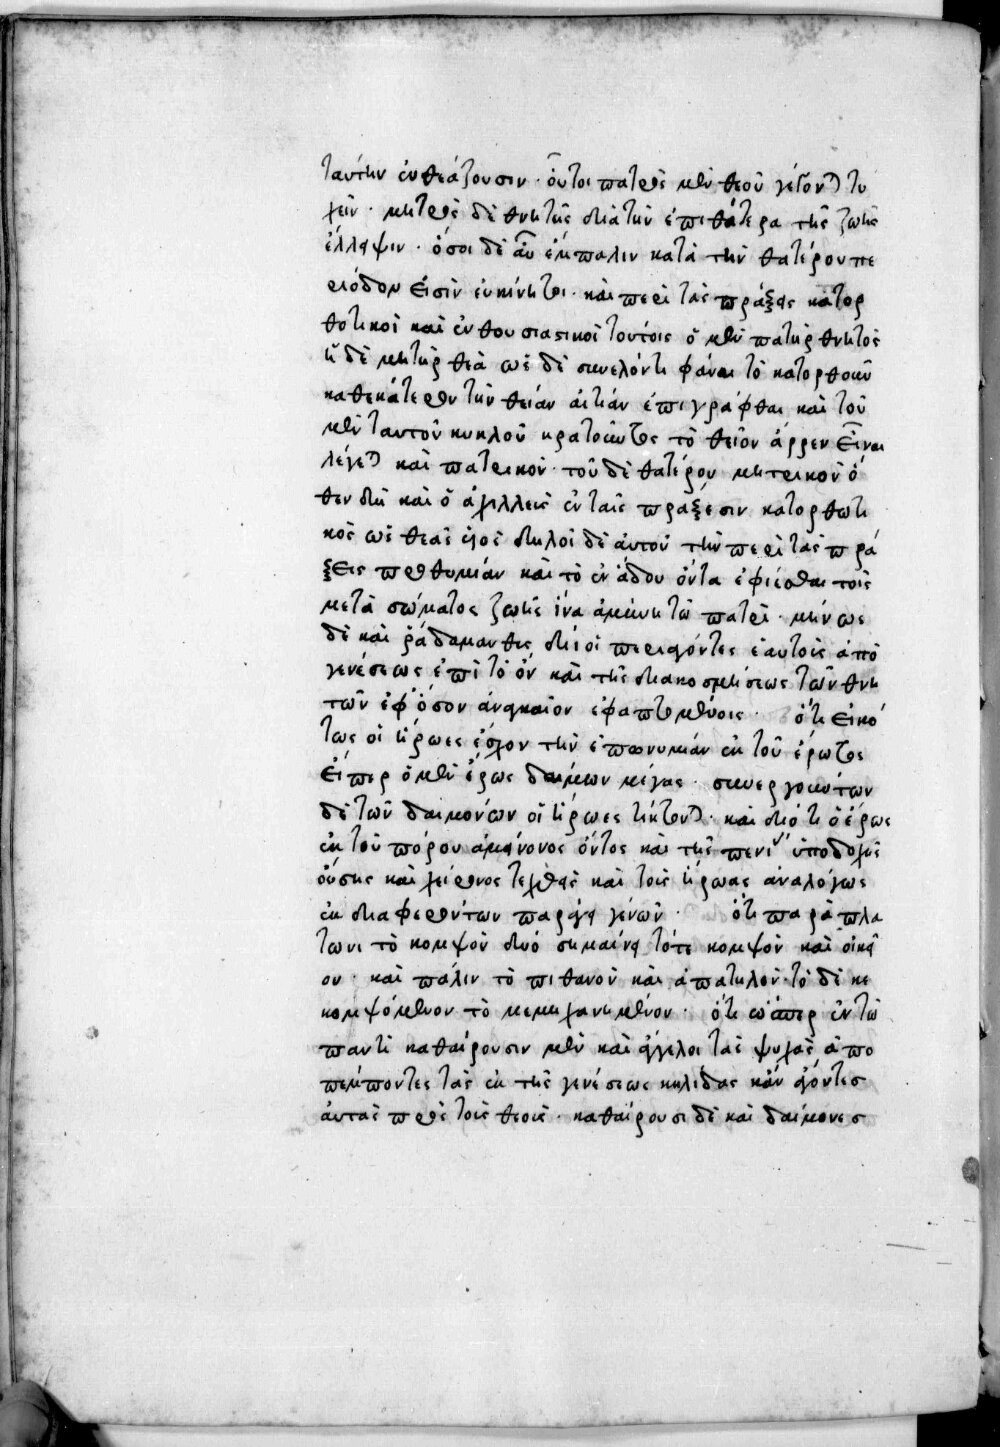 ταύτην ἐνθεάζουσιν · οὗτοι πατρὸς μὲν θεοῦ λέγονται τυ
χεῖν · μητρὸς δὲ θνητῆς διὰ τὴν ἐπὶ θάτερα τῆς ζωῆς
ἔλλειψιν · ὅσοι δὲ αὖ ἔμπαλιν κατὰ τὴν θατέρου πε
ρίοδον εἰσὶν εὐκίνητοι · καὶ περὶ τὰς πράξεις κατορ
θωτικοὶ καὶ ἐνθουσιαστικοὶ τούτοις ὁ μὲν πατὴρ θνητὸς
ἡ δὲ μητὴρ θεὰ ὡς δὲ συνελόντι φάναι τὸ κατορθοῦν
καθεκάτερον τὴν θείαν αἰτίαν ἐπιγράφεται καὶ τοῦ
μὲν ταυτοῦ κυκλοῦ κρατοῦντος τὸ θεῖον ἄρρεν εἶναι
λέγεται καὶ πατρικὸν · τοῦ δὲ θατέρου μητρικὸν ὅ
θεν δὴ καὶ ὁ ἀχιλλεὺς ἐν ταῖς πράξεσιν κατορθωτι
κὸς ὡς θεᾶς υἱὸς δηλοῖ δὲ αὐτοῦ τὴν περὶ τὰς πρά
ξεις προθυμίαν καὶ τὸ ἐν ἅδου ὄντα ἐφίεσθαι τοῖς
μετὰ σώματος ζωῆς ἵνα ἀμύνη τῶ πατρὶ · μήνως
δὲ καὶ ῥάδαμανθυς διΐοι περιάγοντες ἑαυτοὺς ἀπὸ
γενέσεως ἐπὶ τὸ ὂν καὶ τῆς διακοσμήσεως τῶν θνη
τῶν ἐφ' ὅσον ἀναγκαῖον ἐφαπτομένοις · ὅτι εἰκό
τως οἱ ἥρωες ἔσχον τὴν ἐπωνυμίαν ἐκ τοῦ ἔρωτος
εἴπερ ὁ μὲν ἔρως δαίμων μέγας · συνεργούντων
δὲ τῶν δαιμονίων οἱ ἥρωες τίκτονται · καὶ διότι ὁ ἔρως
ἐκ τοῦ πόρου ἀμείνονος ὄντος καὶ τῆς πενίας ὑποδοχῆς
οὔσης καὶ χείρονος τεχθεὶς καὶ τοὺς ἥρωας ἀναλόγως
ἐκ διαφερόντων παράγει γενῶν · ὅτι παρὰ πλά
τωνι τὸ κομψὸν δυό σημαίνει τότε κομψὸν καὶ οἰκεῖ
ον · καὶ πάλιν τὸ πιθανὸν καὶ ἀπατηλὸν · τὸ δὲ κε
κομψόμενον τὸ μεμηχανημένον · ὅτι ὥσπερ ἐν τῶ
παντὶ καθαίρουσιν μὲν καὶ ἄγγελοι τὰς ψυχὰς ἀπο
πέμποντες τὰς ἐκ τῆς γενέσεως κηλίδας κἂν ἄγοντες
αὐτὰς πρὸς τοὺς θεούς · καθαίρουσι δὲ καὶ δαίμονες